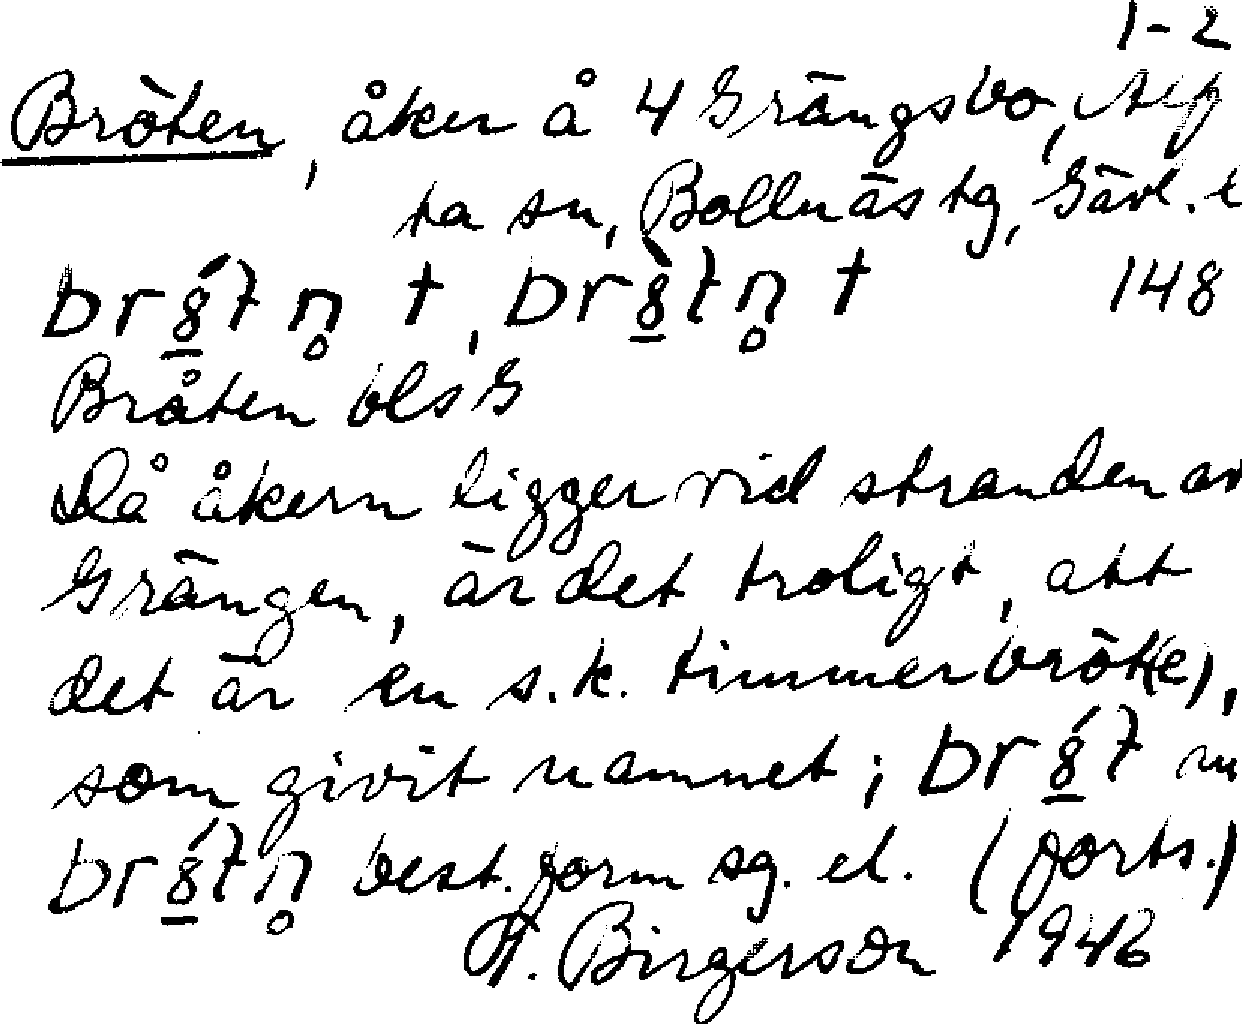 1-2
Bröten, åker å 4 Grängsbo, Alf
ta sn, Bollnäs tg, Gävl. l
br8̲́tn̥ †, br8̲̀tn̥ † 148
Bråten bls G
Då åkern ligger vid stranden av
Grängen, är det troligt, att
det är en s.k. timmerbröt(e),
som givit namnet; br8̲́t m
br8̲́tn̥ best. form sg. el. (forts.)
H. Birgerson 1946